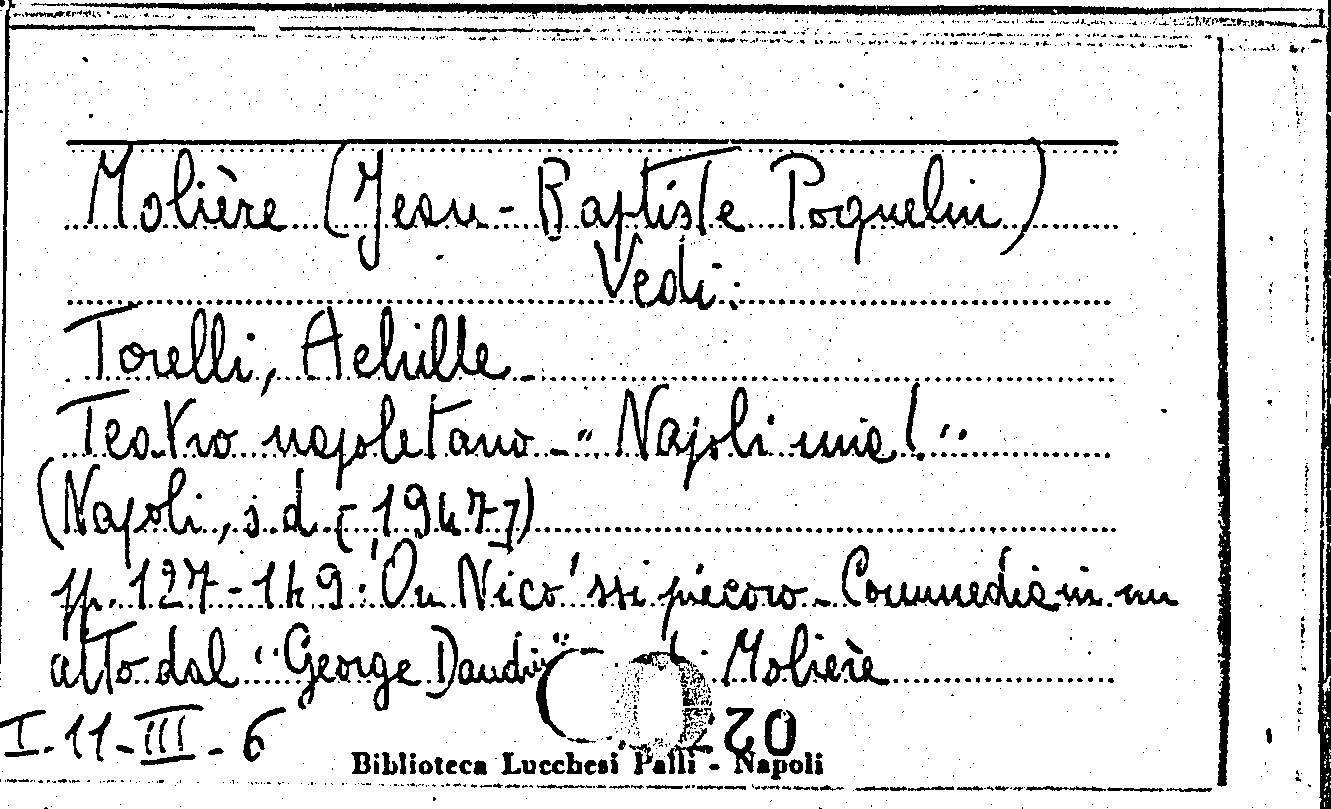 Molière (Jean-Baptiste Poquelin)
Vedi:
Torelli, Achille
Teatro napoletano - "Napoli mia!"
(Napoli, s.d. [1947])
pp. 127-149: 'On Nicò 'ssi piécoro - Commedia in un
atto dal "George Dandin" di Molière
I.11-III-6
Biblioteca Lucchesi Palli - Napoli